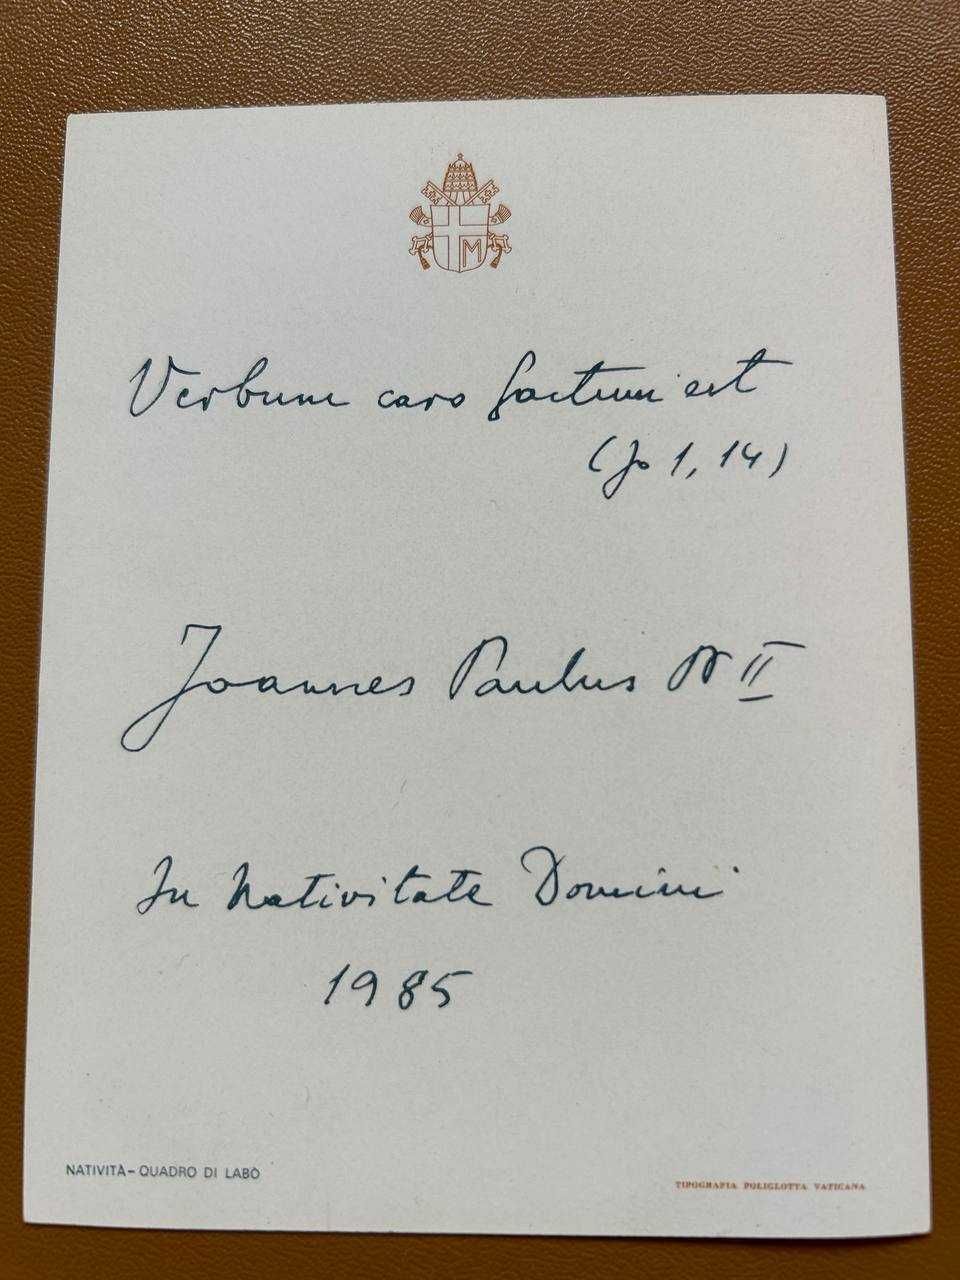 M
Verbum caro factum est
(Jo 1, 14)
Joannes Paulus PP II
In Nativitate Domini
1985
NATIVITÀ - QUADRO DI LABÒ
TIPOGRAFIA POLIGLOTTA VATICANA